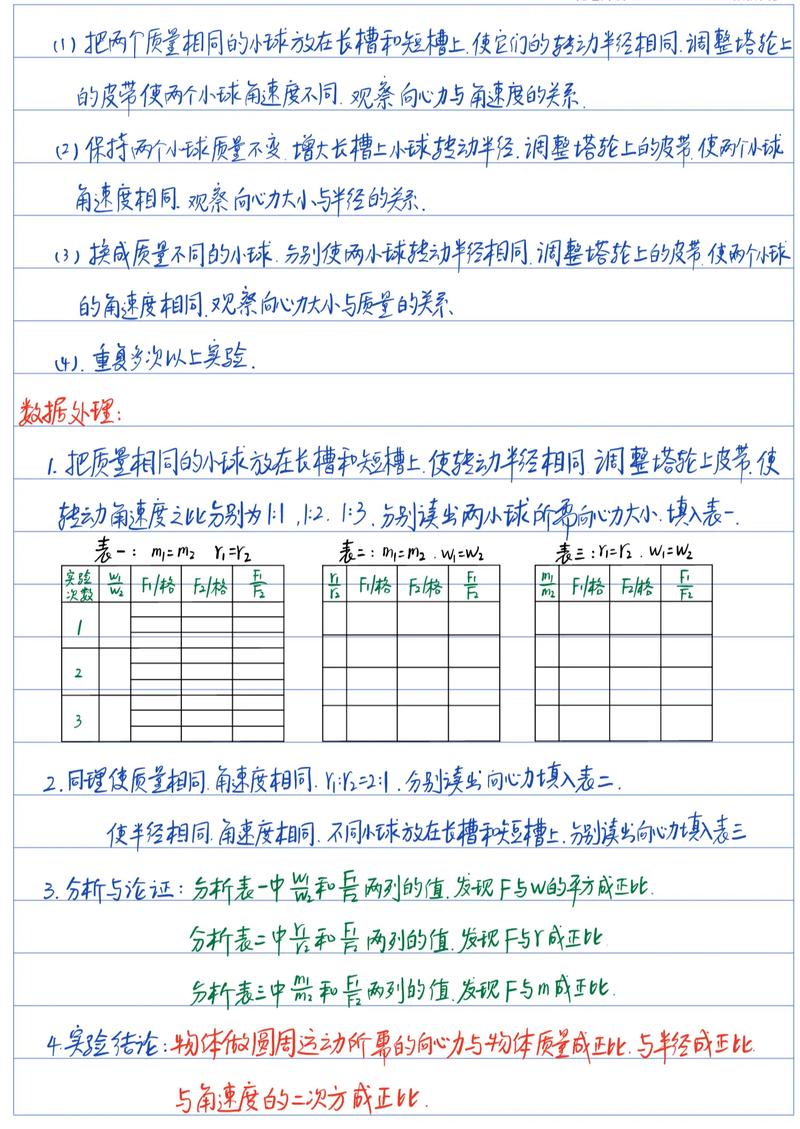 (1) 把两个质量相同的小球放在长槽和短槽上.使它们的转动半径相同.调整塔轮上
的皮带使两个小球角速度不同.观察向心力与角速度的关系.
(2) 保持两个小球质量不变.增大长槽上小球转动半径.调整塔轮上的皮带.使两个小球
角速度相同.观察向心力大小与半径的关系.
(3) 换成质量不同的小球.分别使两小球转动半径相同.调整塔轮上的皮带.使两个小球
的角速度相同.观察向心力大小与质量的关系.
(4). 重复多次以上实验.
数据处理:
1. 把质量相同的小球放在长槽和短槽上.使转动半径相同 调整塔轮上皮带.使
转动角速度之比分别为1:1,1:2.1:3.分别读出两小球所需向心力大小.填入表一.
表一: m₁=m₂ r₁=r₂ 表二: m₁=m₂.w₁=w₂ 表三: r₁=r₂.w₁=w₂
实验次数 w₁/w₂ F₁/格 F₂/格 F₁/F₂ r₁/r₂ F₁/格 F₂/格 F₁/F₂ m₁/m₂ F₁/格 F₂/格 F₁/F₂
1
2
3
2.同理使质量相同.角速度相同.r₁:r₂=2:1.分别读出向心力填入表二.
使半径相同.角速度相同.不同小球放在长槽和短槽上.分别读出向心力填入表三
3.分析与论证:分析表一中w₁/w₂和F₁/F₂两列的值.发现F与w的平方成正比.
分析表二中r₁/r₂和F₁/F₂两列的值.发现F与r成正比
分析表三中m₁/m₂和F₁/F₂两列的值.发现F与m成正比.
4.实验结论:物体做圆周运动所需的向心力与物体质量成正比.与半径成正比.
与角速度的二次方成正比.